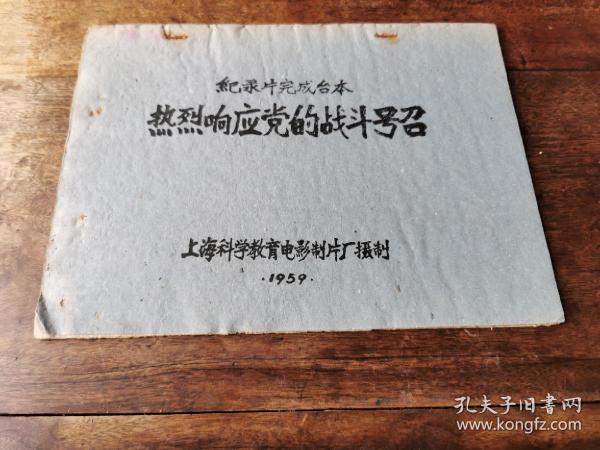 紀录片完成台本
热烈响应党的战斗号召
上海科学教育电影制片厂摄制
·1959·
孔夫子旧書网
www.kongfz.com